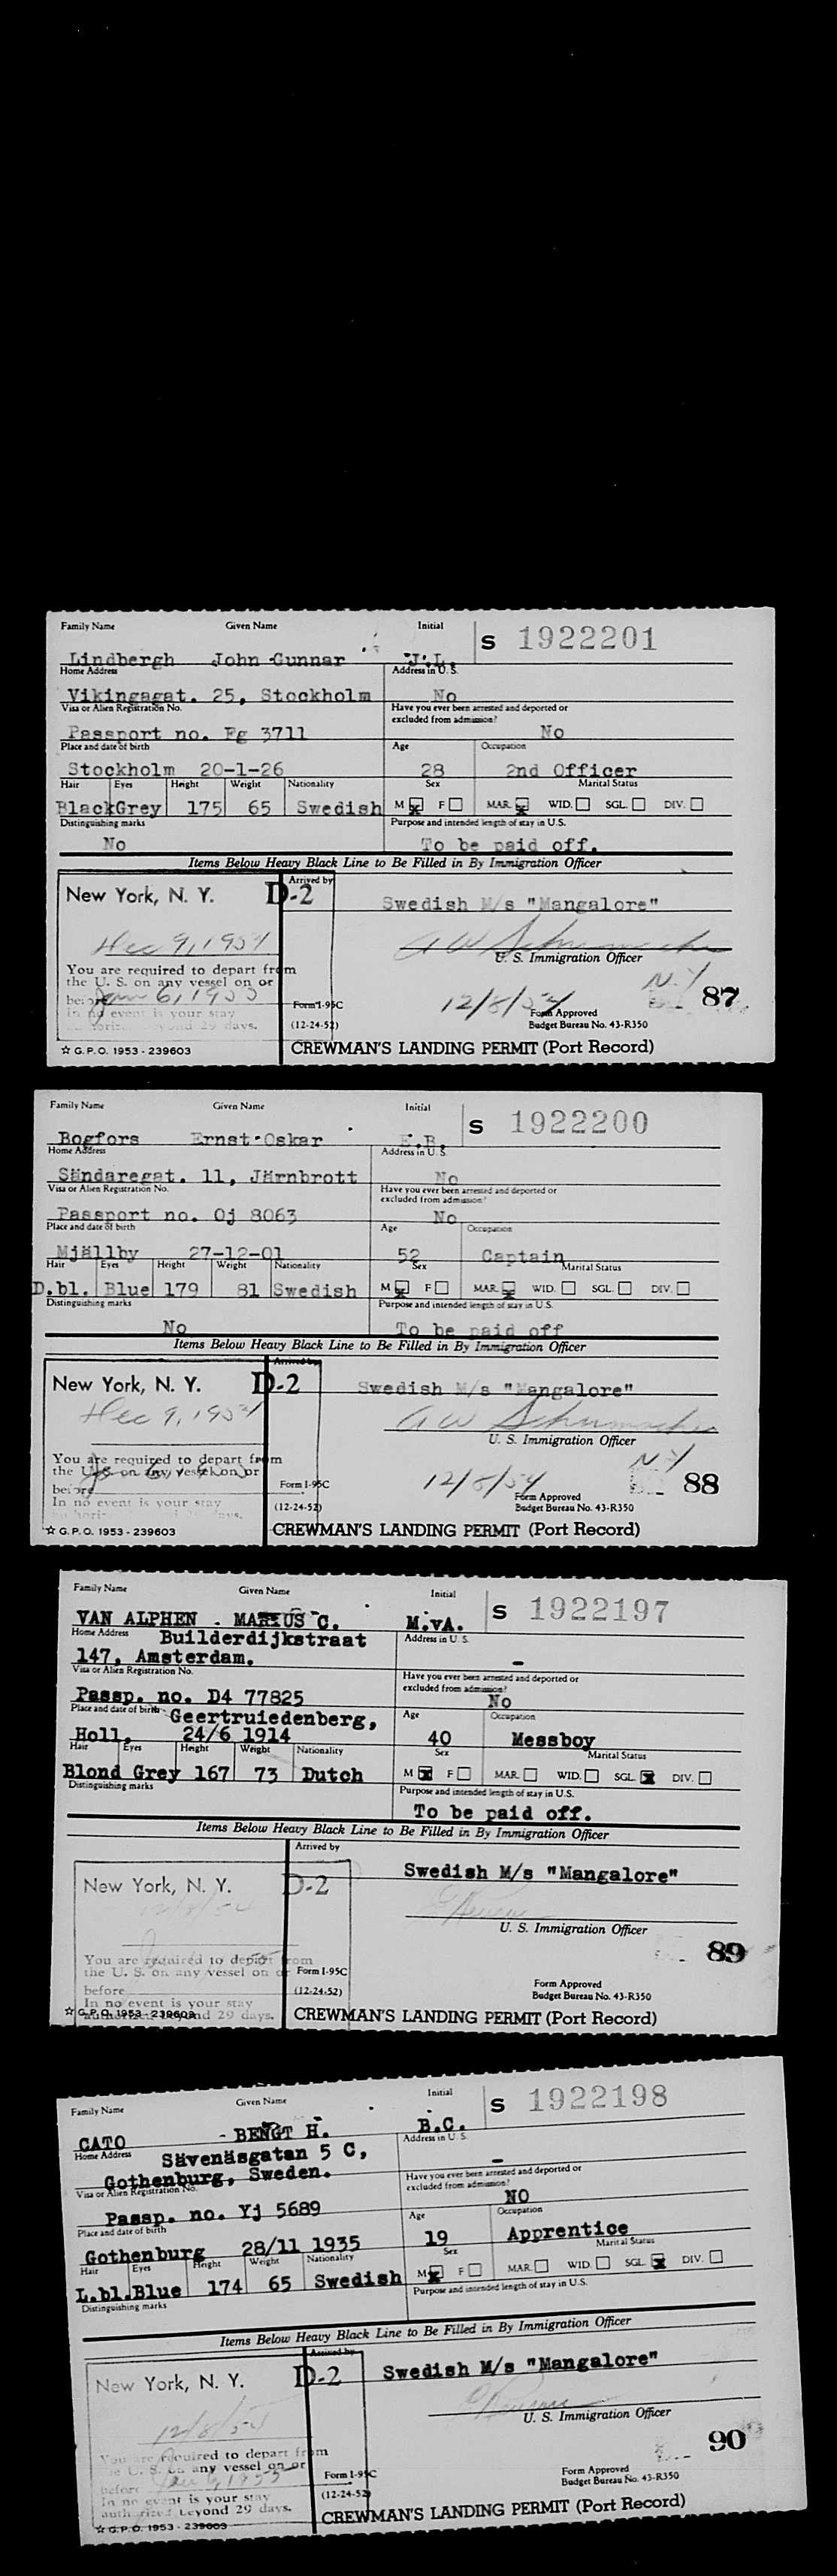 Family Name Given Name Initial S 1922201
Lindbergh John Gunnar J.L.
Home Address Address in U. S.
Vikingagat. 25, Stockholm No
Visa or Alien Registration No. Have you ever been arrested and deported or excluded from admission?
Passport no. Fg 3711 No
Place and date of birth Age Occupation
Stockholm 20-1-26 28 2nd Officer
Hair Eyes Height Weight Nationality Sex Marital Status
Black Grey 175 65 Swedish M F MAR. WID. SGL. DIV.
Distinguishing marks Purpose and intended length of stay in U.S.
No To be paid off.
Items Below Heavy Black Line to Be Filled in By Immigration Officer
Arrived by
New York, N. Y. D-2 Swedish M/s "Mangalore"
Dec 9, 1954 A W Schumacher
U. S. Immigration Officer
You are required to depart from
the U. S. on any vessel on or
before Jan 6, 1955 N.Y 87
In no event is your stay
beyond 29 days.
Form I-95C 12/8/54 Form Approved
(12-24-52) Budget Bureau No. 43-R350
☆ G.P.O. 1953 - 239603 CREWMAN'S LANDING PERMIT (Port Record)
Family Name Given Name Initial S 1922200
Bogfors Ernst Oskar E.B.
Home Address Address in U. S.
Sändaregat. 11, Järnbrott No
Visa or Alien Registration No. Have you ever been arrested and deported or excluded from admission?
Passport no. Oj 8063 No
Place and date of birth Age Occupation
Mjällby 27-12-01 52 Captain
Hair Eyes Height Weight Nationality Sex Marital Status
D.bl. Blue 179 81 Swedish M F MAR. WID. SGL. DIV.
Distinguishing marks Purpose and intended length of stay in U.S.
No To be paid off
Items Below Heavy Black Line to Be Filled in By Immigration Officer
Arrived by
New York, N. Y. D-2 Swedish M/s "Mangalore"
Dec 9, 1954 A W Schumacher
U. S. Immigration Officer
You are required to depart from
the U. S. on any vessel on or
before N.Y 88
In no event is your stay
days.
Form I-95C 12/8/54 Form Approved
(12-24-52) Budget Bureau No. 43-R350
☆ G.P.O. 1953 - 239603 CREWMAN'S LANDING PERMIT (Port Record)
Family Name Given Name Initial S 1922197
VAN ALPHEN - MARIUS C. M.vA.
Home Address Builderdijkstraat Address in U. S.
147, Amsterdam. -
Visa or Alien Registration No. Have you ever been arrested and deported or excluded from admission?
Passp. no. D4 77825 No
Place and date of birth Geertruiedenberg, Age Occupation
Holl, 24/6 1914 40 Messboy
Hair Eyes Height Weight Nationality Sex Marital Status
Blond Grey 167 73 Dutch M F MAR. WID. SGL. DIV.
Distinguishing marks Purpose and intended length of stay in U.S.
To be paid off.
Items Below Heavy Black Line to Be Filled in By Immigration Officer
Arrived by
New York, N. Y. D-2 Swedish M/s "Mangalore"
12/8/54
U. S. Immigration Officer
You are required to depart from
the U. S. on any vessel on or 89
before
In no event is your stay
authorized beyond 29 days.
Form I-95C Form Approved
(12-24-52) Budget Bureau No. 43-R350
☆ G.P.O. 1953 - 239603 CREWMAN'S LANDING PERMIT (Port Record)
Family Name Given Name Initial S 1922198
CATO - BENGT H. B.C.
Home Address Sävenäsgatan 5 C, Address in U. S.
Gothenburg, Sweden. -
Visa or Alien Registration No. Have you ever been arrested and deported or excluded from admission?
Passp. no. Yj 5689 NO
Place and date of birth Age Occupation
Gothenburg 28/11 1935 19 Apprentice
Hair Eyes Height Weight Nationality Sex Marital Status
L.bl. Blue 174 65 Swedish M F MAR. WID. SGL. DIV.
Distinguishing marks Purpose and intended length of stay in U.S.
Items Below Heavy Black Line to Be Filled in By Immigration Officer
Arrived by
New York, N. Y. D-2 Swedish M/s "Mangalore"
12/8/54
U. S. Immigration Officer
You are required to depart from
the U. S. on any vessel on or
before Jan 6, 1955 90
In no event is your stay
authorized beyond 29 days.
Form I-95C Form Approved
(12-24-52) Budget Bureau No. 43-R350
☆ G.P.O. 1953 - 239603 CREWMAN'S LANDING PERMIT (Port Record)